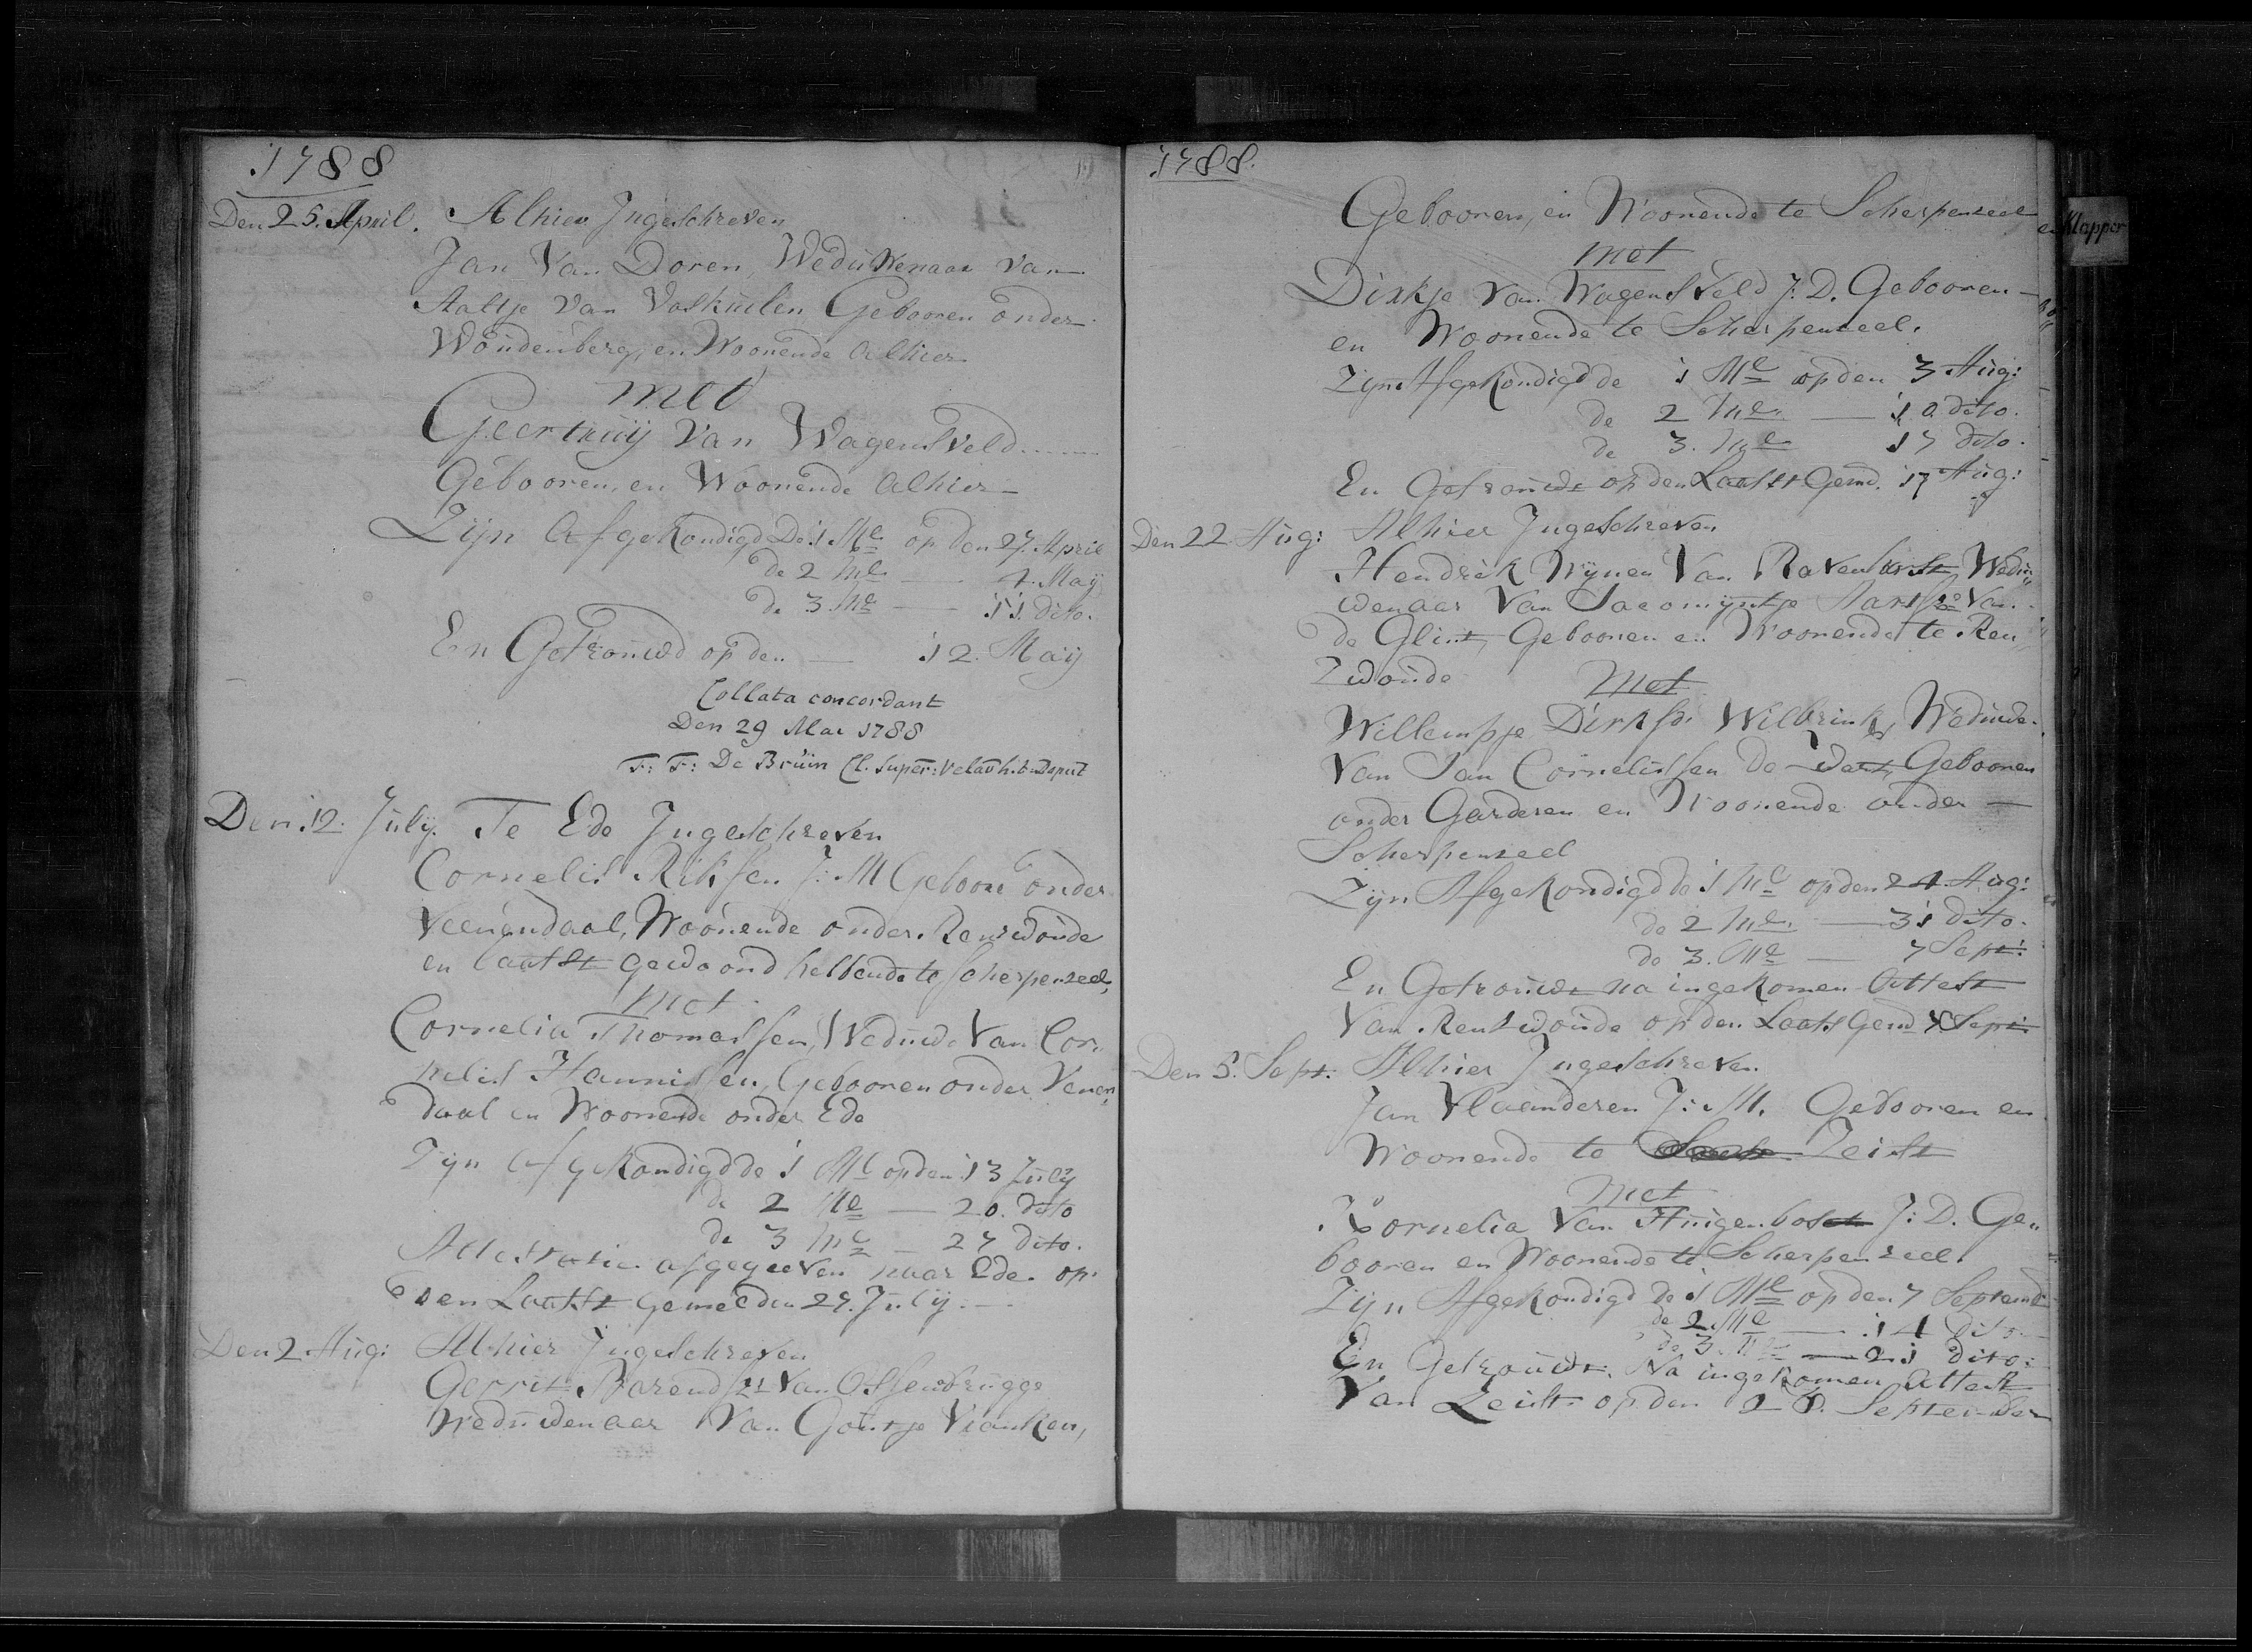 1788
Den 25. April. Alhier Ingeschreven
Jan Van Doren, Weduwenaar van
Aaltje van Voskuilen Gebooren onder
Woudenberg, en Woonende alhier
met
Geertruij van Wagensveld
Gebooren, en Woonende alhier
Zijn Afgekondigd De 1 Me op den 27. April
de 2 Me — 4. Maij
de 3 Me — 11. dito.
En Getrouwd op den — 12. Maij
Collata concordant
Den 29 Mai 1788
De Bruin Cl. Super: Velau h.t. Deput
Den 12. July. Te Ede Ingeschreven
Cornelis Rikssen J: M Geboore onder
Veenendaal, Woonende onder Renswoude
en laatst gewoond hebbende te Scherpenzeel,
met
Cornelia Thomassen, Weduwe Van Cor„
nelis Hannissen, Gebooren onder Venen„
daal en Woonende onder Ede
Zijn Afgekondigd de 1 Me op den 13 July
de 2 Me — 20. dito
de 3 Me — 27 dito.
Attestatie afgegeeven naar Ede op
den Laatst gemelden 27. July. —
Den 2 Aug: Alhier Ingeschreven
Gerrit Barendsz Van Ossenbrugge
Weduwenaar Van Goutje Vianken,
1788.
Gebooren, en Woonende te Scherpenzeel
met
Dirkje Van Wagensveld J: D. Gebooren —
en Woonende te Scherpenzeel.
Zijn Afgekondigd de 1 Me op den 3 Aug:
de 2 Me — 10 dito.
de 3. Me 17 dito.
En Getrouwt op den Laatst Gemd. 17 Aug:
Den 22 Aug: Alhier Ingeschreven
Hendrik Wijnen Van Ravenhorst Wedu„
wenaar Van Jacomijntje Van
de Glint, Gebooren en Woonende te Ren„
Zwoude
Met
Willempje Dirksz. Wilbrink, Weduwe
Van Jan Cornelissen de Gebooren
onder Garderen en Woonende onder —
Scherpenzeel
Zijn Afgekondigd de 1 Me op den 24 Aug:
de 2 Me. — 31 dito.
de 3. Me — 7 Sept:
En Getrouwt na ingekomen Attest
Van Renswoude op den Laatst Gemd 7 Sept:
Den 5. Sept: Alhier Ingeschreven
Jan Vlaanderen J: M. Gebooren en
Woonende te Zeist
Met
Kornelia Van Huigenbosch J: D. Ge„
booren en Woonende te Scherpenzeel.
Zijn Afgekondigd de 1 Me op den 7 Septemb
de 2. Me — 14 dito.
de 3. Me — 21 dito:
En Getrouwt. Na ingekomen Attest
Van Zeist op den September
Klapper